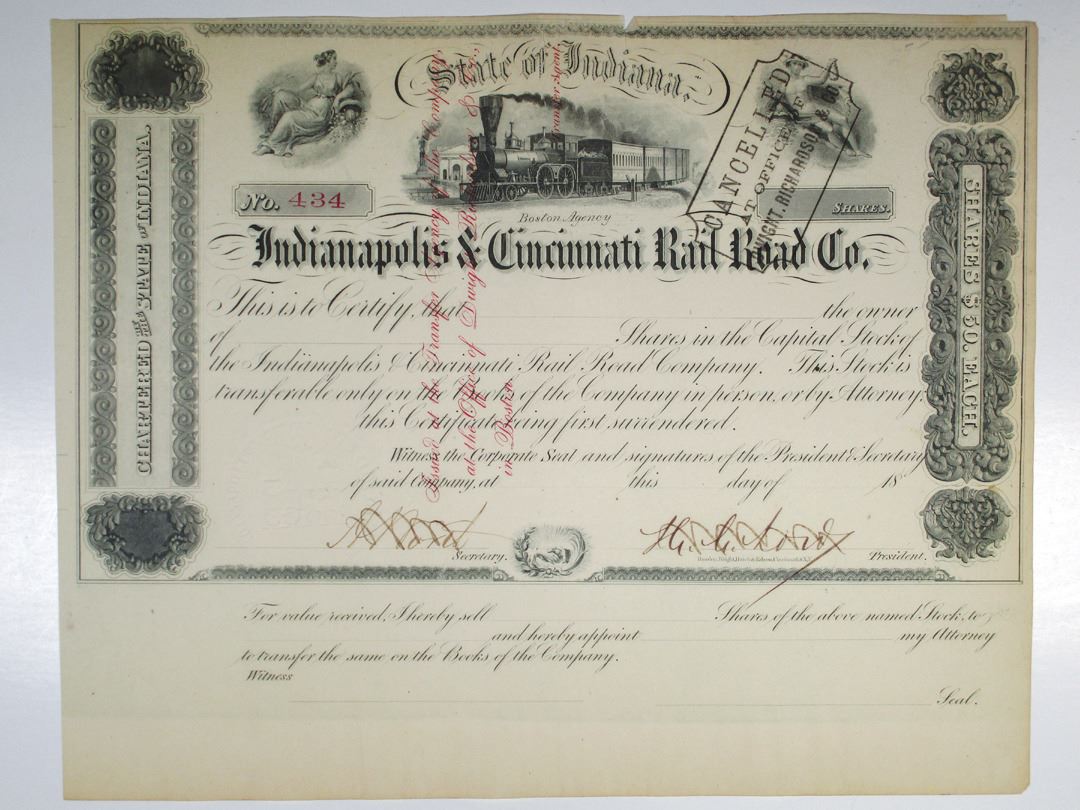 State of Indiana.
No. 434
SHARES.
Boston Agency
Indianapolis & Cincinnati Rail Road Co.
CHARTERED BY THE STATE OF INDIANA.
SHARES $50. EACH.
CANCELLED
AT OFFICE OF
DWIGHT. RICHARDSON & CO
This is to Certify, that the owner
of Shares in the Capital Stock of
the Indianapolis & Cincinnati Rail Road Company. This Stock is
transferable only on the Books of the Company in person, or by Attorney,
this Certificate being first surrendered.
Witness the Corporate Seal and signatures of the President & Secretary
of said Company, at this day of 18
Issued at the Transfer Agency of the Company
at the Office of Dwight Richardson & Co.
in Boston
Secretary.
President.
For value received, I hereby sell Shares of the above named Stock, to
and hereby appoint my Attorney
to transfer the same on the Books of the Company.
Witness
Seal.